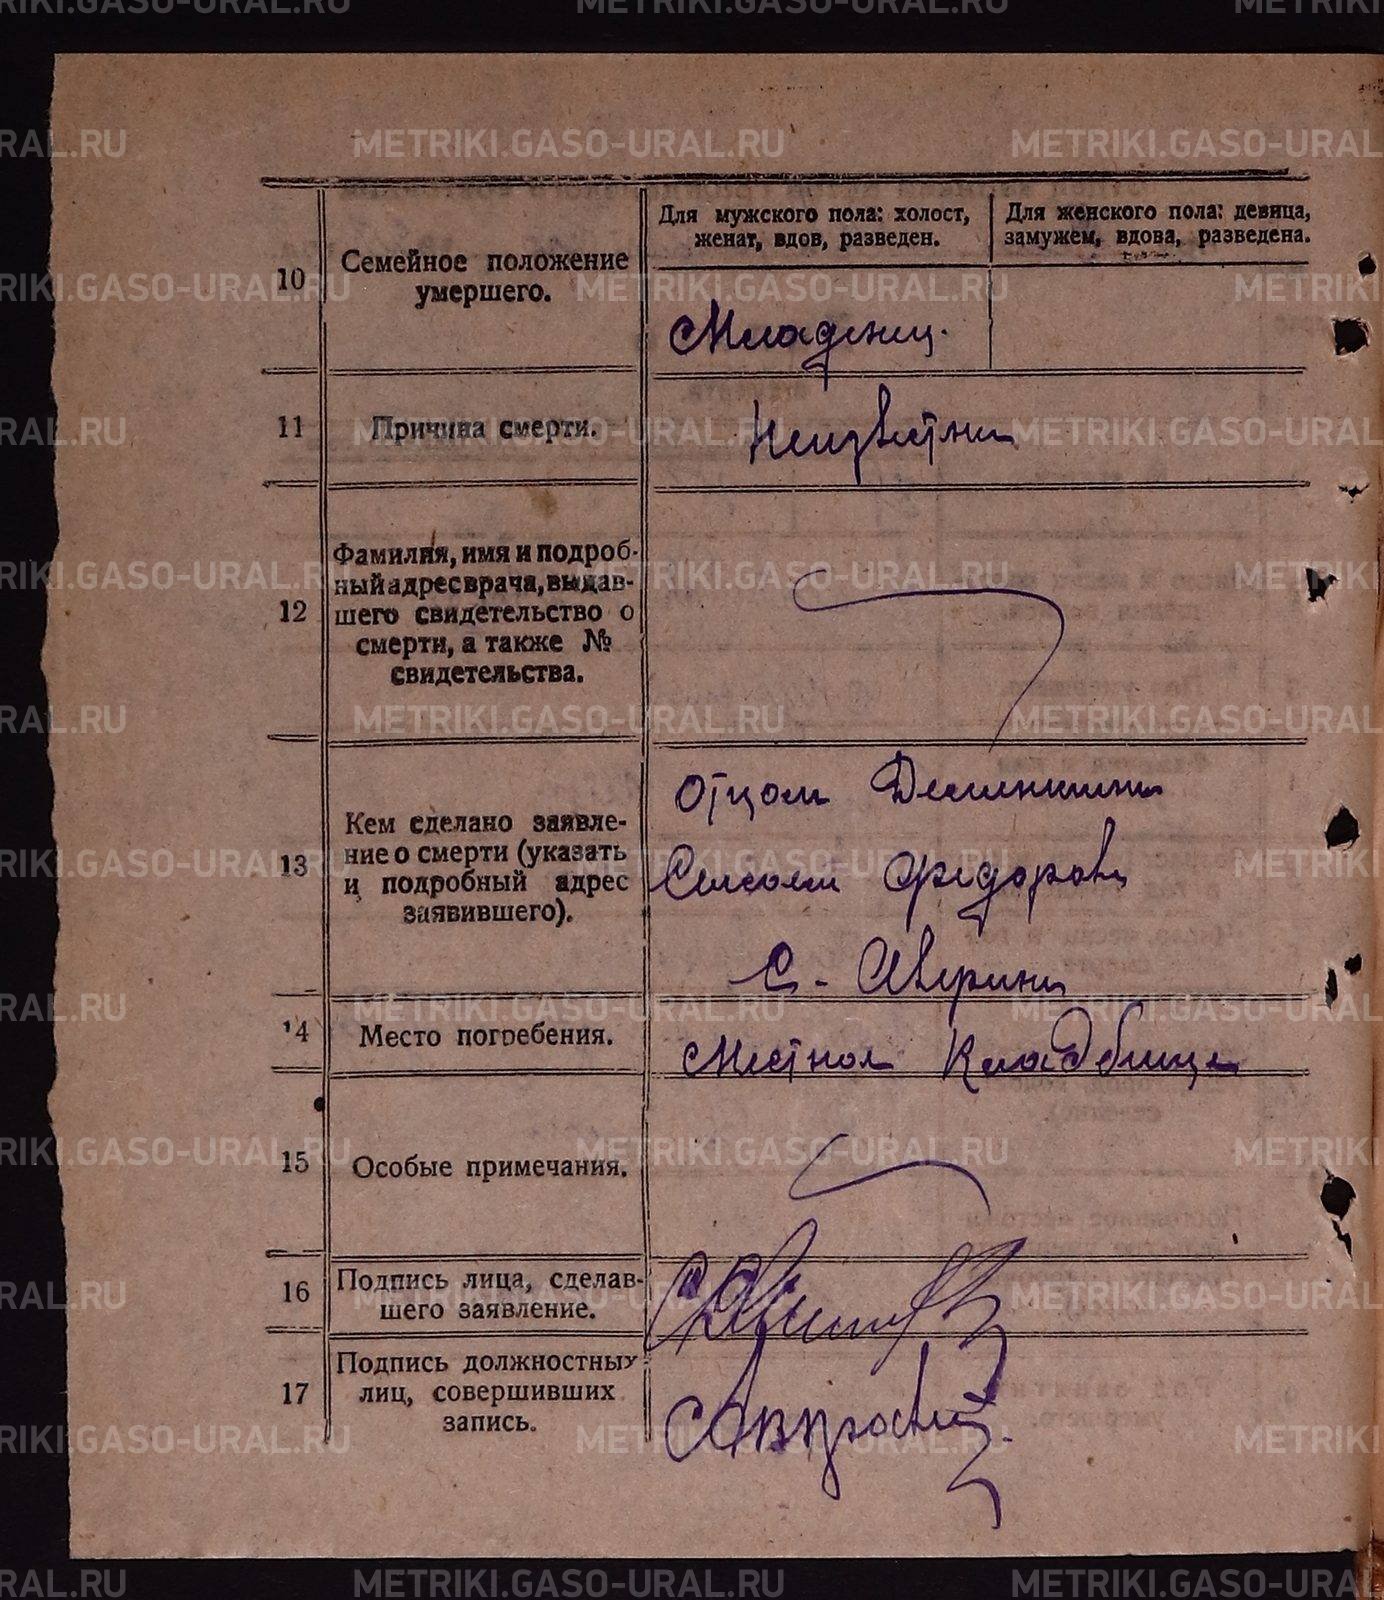 Для мужского пола: холост, женат, вдов, разведен.
Для женского пола: девица, замужем, вдова, разведена.
10
Семейное положение
умершего.
Младенец.
11
Причина смерти.
Неизвестна
12
Фамилия, имя и подроб-
ный адрес врача, выдав-
шего свидетельство о
смерти, а также №
свидетельства.
13
Кем сделано заявле-
ние о смерти (указать
и подробный адрес
заявившего).
Отцом
Федоров
с. Аверино
14
Место погребения.
Местное Кладбище
15
Особые примечания.
16
Подпись лица, сделав-
шего заявление.
17
Подпись должностных
лиц, совершивших
запись.
METRIKI.GASO-URAL.RU